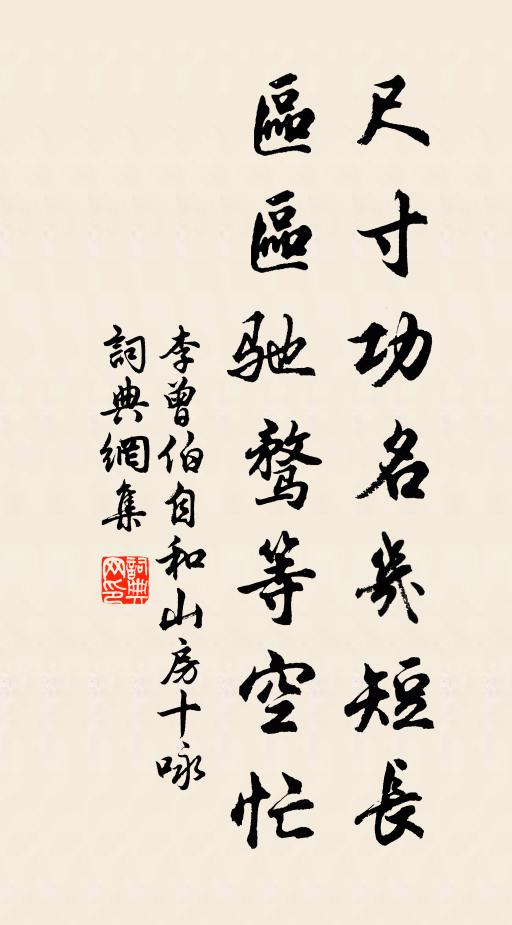 尺寸功名幾短長
區區驰鹜等空忙
李曾伯自和山房十咏
詞典網集
詞典网印